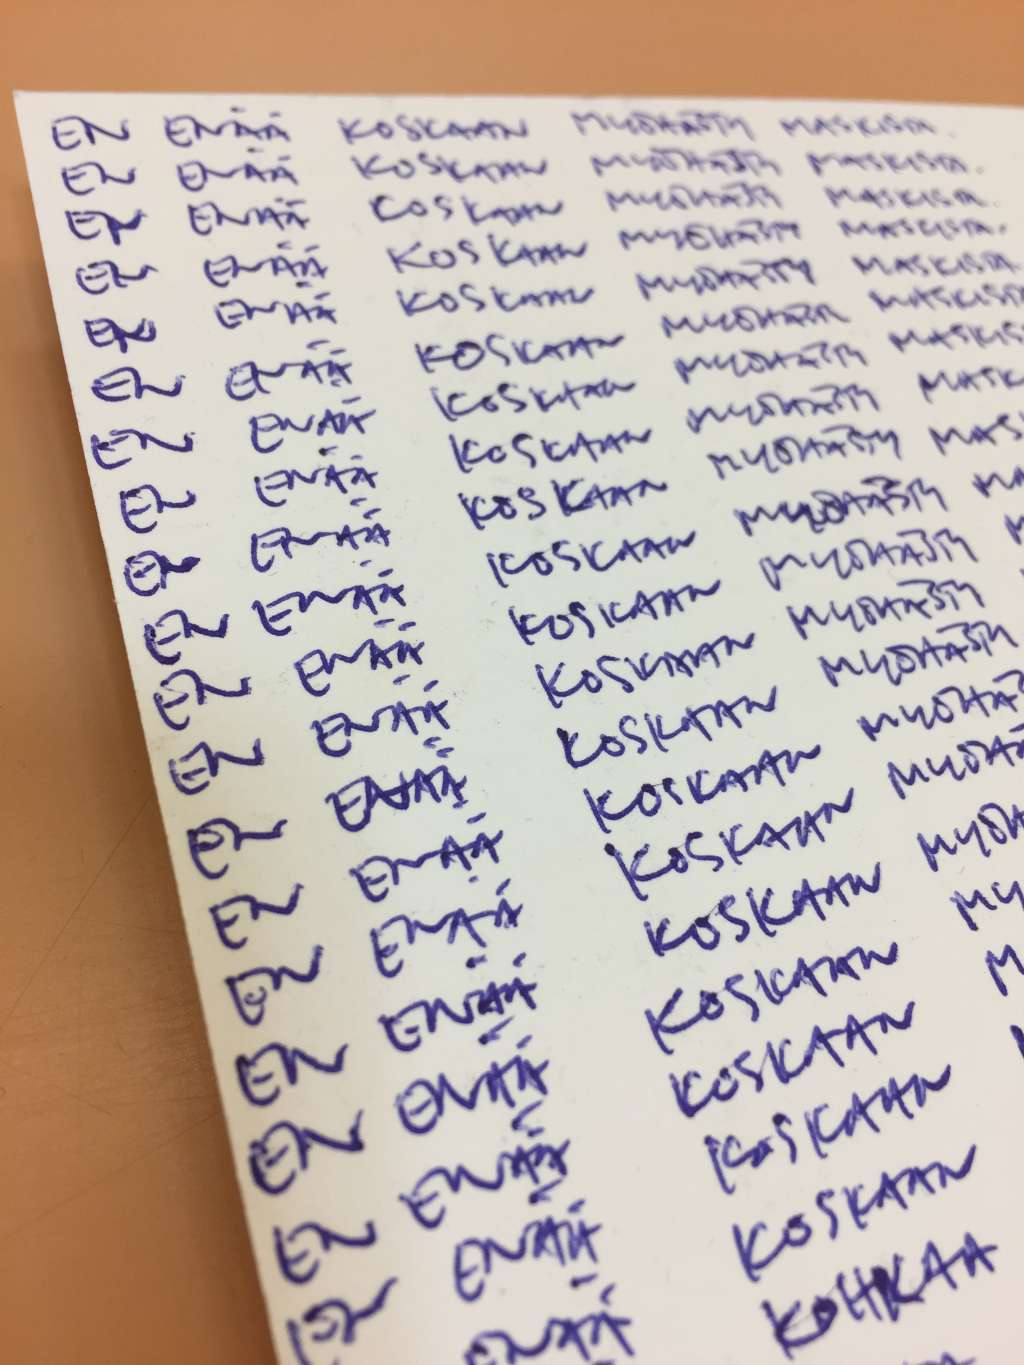 EN ENÄÄ KOSKAAN MYÖHÄSTY MASKISTA.
EN ENÄÄ KOSKAAN MYÖHÄSTY MASKISTA.
EN ENÄÄ KOSKAAN MYÖHÄSTY MASKISTA.
EN ENÄÄ KOSKAAN MYÖHÄSTY MASKISTA.
EN ENÄÄ KOSKAAN MYÖHÄSTY MASKISTA.
EN ENÄÄ KOSKAAN MYÖHÄSTY MASKISTA
EN ENÄÄ KOSKAAN MYÖHÄSTY MASKIS
EN ENÄÄ KOSKAAN MYÖHÄSTY MASK
EN ENÄÄ KOSKAAN MYÖHÄSTY MAS
EN ENÄÄ KOSKAAN MYÖHÄSTY MA
EN ENÄÄ KOSKAAN MYÖHÄSTY
EN ENÄÄ KOSKAAN MYÖHÄSTY
EN ENÄÄ KOSKAAN MYÖHÄSTY
EN ENÄÄ KOSKAAN MYÖHÄS
EN ENÄÄ KOSKAAN MYÖHÄ
EN ENÄÄ KOSKAAN MYÖH
EN ENÄÄ KOSKAAN MY
EN ENÄÄ KOSKAAN M
EN ENÄÄ KOSKAAN
EN ENÄÄ KOSKAAN
ENÄÄ KOHKAA